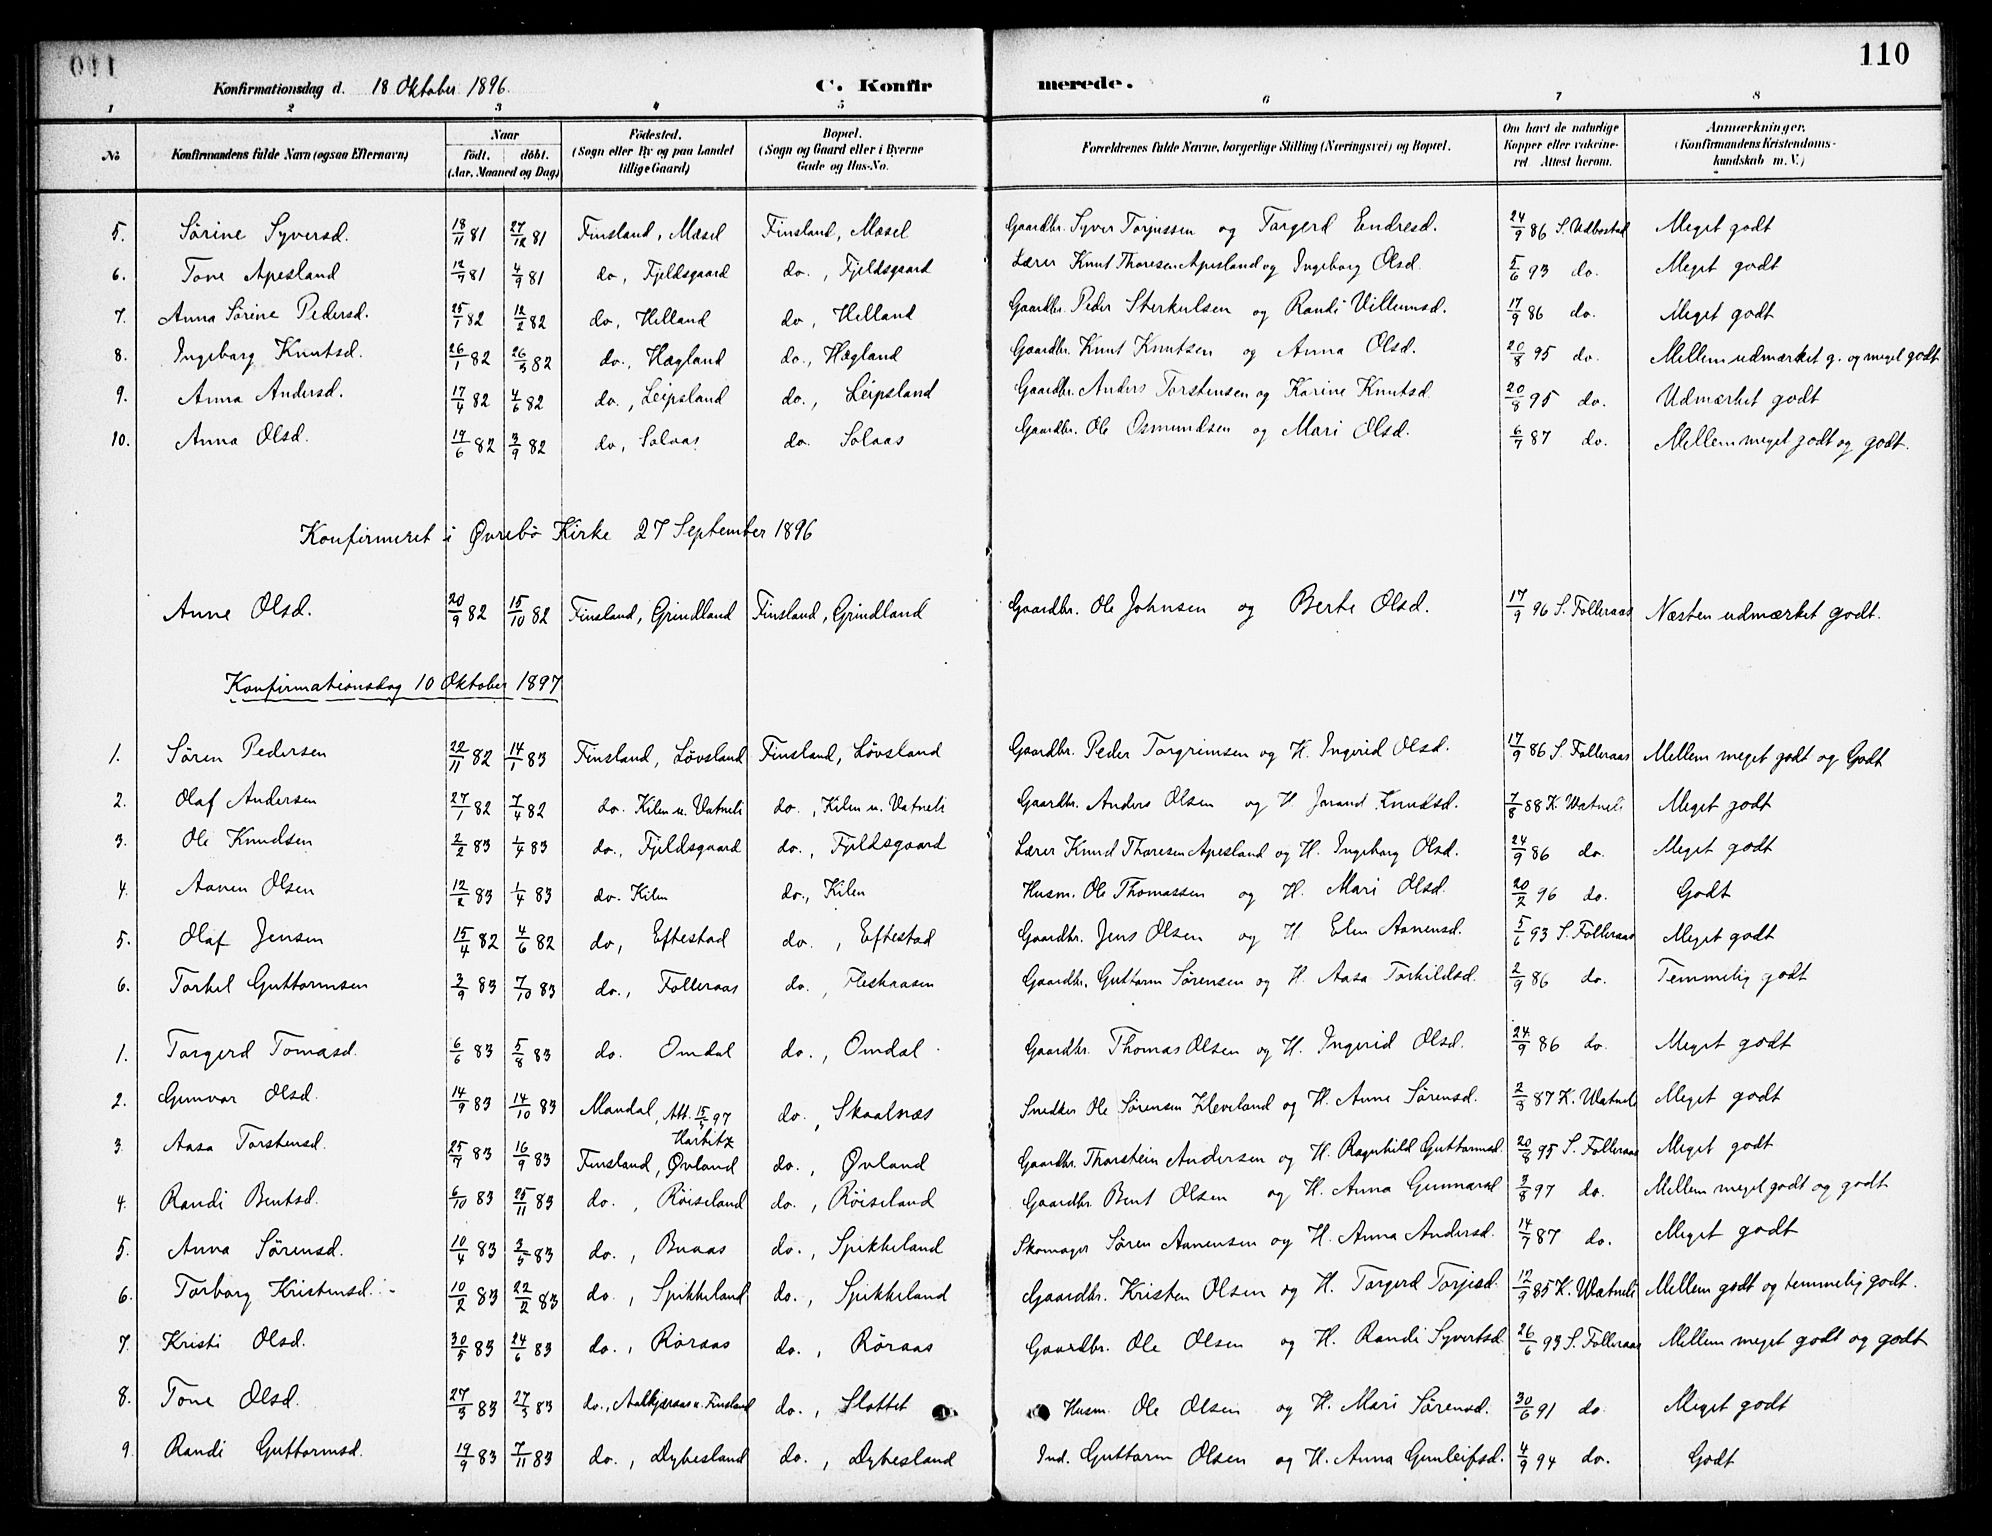 110
Konfirmationsdag d. 18 Oktober 1896.
C. Konfirmerede.
1 2 3 4 5 6 7 8
No
Konfirmandens fulde Navn (ogsaa Efternavn)
Naar
födt. döbt.
(Aar, Maaned og Dag)
Födested.
(Sogn eller By og paa Landet
tillige Gaard)
Bopæl.
(Sogn og Gaard eller i Byerne
Gade og Hus-No.
Forældrenes fulde Navne, borgerlige Stilling (Næringsvei) og Bopæl.
Om havt de naturlige
Kopper eller vakcine-
ret Attest herom.
Anmærkninger.
(Konfirmandens Kristendoms-
kundskab m. V.)
5. Sörine Syversd. 18/11 81 27/12 81 Finsland, Mæsel Finsland, Mæsel Gaardbr. Syver Torjussen og Torgerd Endresd. 24/9 86 S. Udbostad Meget godt
6. Tone Apesland 12/7 81 4/9 81 do, Fjeldsgaard do., Fjeldsgaard Lærer Knut Thoresen Apesland og Ingeborg Olsd. 5/6 93 do. Meget godt
7. Anna Sörine Pedersd. 25/1 82 12/2 82 do, Helland do, Helland Gaardbr. Peder Sterkulsen og Randi Villumsd. 17/9 86 do. Meget godt
8. Ingeborg Knutsd. 26/1 82 26/3 82 do., Hægland do., Hægland Gaardbr. Knut Knutsen og Anna Olsd. 20/8 95 do. Mellem udmærket g. og meget godt
9. Anna Andersd. 17/4 82 4/6 82 do., Leipsland do., Leipsland Gaardbr. Anders Torstensen og Karine Knutsd. 20/8 95 do. Udmærket godt
10. Anna Olsd. 19/6 82 3/9 82 do, Solaas do. Solaas Gaardbr. Ole Osmundsen og Mari Olsd. 6/7 87 do. Mellem meget godt og godt.
Konfirmeret i Øvrebö Kirke 27 September 1896
Anne Olsd. 20/9 82 15/10 82 Finsland, Grindland Finsland, Grindland Gaardbr. Ole Johnsen og Berte Olsd. 17/9 96 S. Folleraas Næsten udmærket godt.
Konfirmationsdag 10 Oktober 1897
1. Sören Pedersen 22/11 82 14/1 83 Finsland, Lövsland Finsland, Lövsland Gaardbr. Peder Torgrimsen og H. Ingerid Olsd. 17/9 86 S. Folleraas Mellem meget godt og Godt
2. Olaf Andersen 27/1 82 7/4 82 do. Kilen u. Vatneli do., Kilen u. Vatneli Gaardbr. Anders Olsen og H. Jorand Knudsd. 7/8 88 K. Watneli Meget godt
3. Ole Knudsen 2/2 83 1/4 83 do., Fjeldsgaard do., Fjeldsgaard Lærer Knud Thoresen Apesland og H. Ingeborg Olsd. 24/9 86 do. Meget godt
4. Aanen Olsen 12/2 83 1/4 83 do. Kilen do., Kilen Husm. Ole Thomassen og H. Mari Olsd. 20/2 96 do. Godt
5. Olaf Jensen 15/4 82 4/6 82 do, Eftestad do., Eftestad Gaardbr. Jens Olsen og H Elen Aanensd. 5/6 93 S. Folleraas Meget godt
6. Torkel Guttormsen 3/9 83 7/10 83 do., Folleraas do., Fleskaasen Gaardbr. Guttorm Sörensen og H. Aasa Torkildsd. 2/9 86 do. Temmelig godt
1. Torgerd Tomasd. 6/6 83 5/8 83 do. Omdal do., Omdal Gaardbr. Thomas Olsen og H. Ingerid Olsd. 24/9 86 do. Meget godt
2. Gunvor Olsd. 14/9 83 14/10 83 Mandal, Att. 15/5 97 Hartitz do., Skaalnæs Snedker Ole Sörensen Kleveland og H. Anne Sörensd. 2/8 87 K. Watneli Meget godt
3. Aasa Torstensd. 25/7 83 16/9 83 Finsland, Øvland do., Øvland Gaardbr. Thorstein Andersen og H. Ragnhild Guttormsd. 20/8 95 S. Folleraas Meget godt
4. Randi Bentsd. 6/10 83 25/11 83 do., Röiseland do., Röiseland Gaardbr. Bent Olsen og H. Anna Gunnarsd 2/8 97 do. Mellem meget godt og godt
5. Anna Sörensd. 10/4 83 3/5 83 do., Buaas do., Spikkeland Skomager Sören Aanensen og H. Anna Andersd. 14/7 87 do. Meget godt
6. Torborg Kristensd. 10/2 83 22/2 83 do., Spikkeland do., Spikkeland Gaardbr. Kristen Olsen og H. Torgerd Torjesd. 12/9 85 K. Watneli Mellem godt og temmelig godt.
7. Kristi Olsd. 30/5 83 24/6 83 do., Röraas do., Röraas Gaardbr. Ole Olsen og H. Randi Syvertsd. 26/6 93 S. Folleraas Mellem meget godt og godt
8. Tone Olsd. 27/3 83 27/3 83 do., Aalkjæraas u. Finsland do., Slottet Husm. Ole Olsen og H. Mari Sörensd. 30/6 91 do. Meget godt
9. Randi Guttormsd. 19/9 83 7/11 83 do., Dybesland do., Dybesland Ind. Guttorm Olsen og H. Anna Gunleifsd. 4/9 94 do. Godt